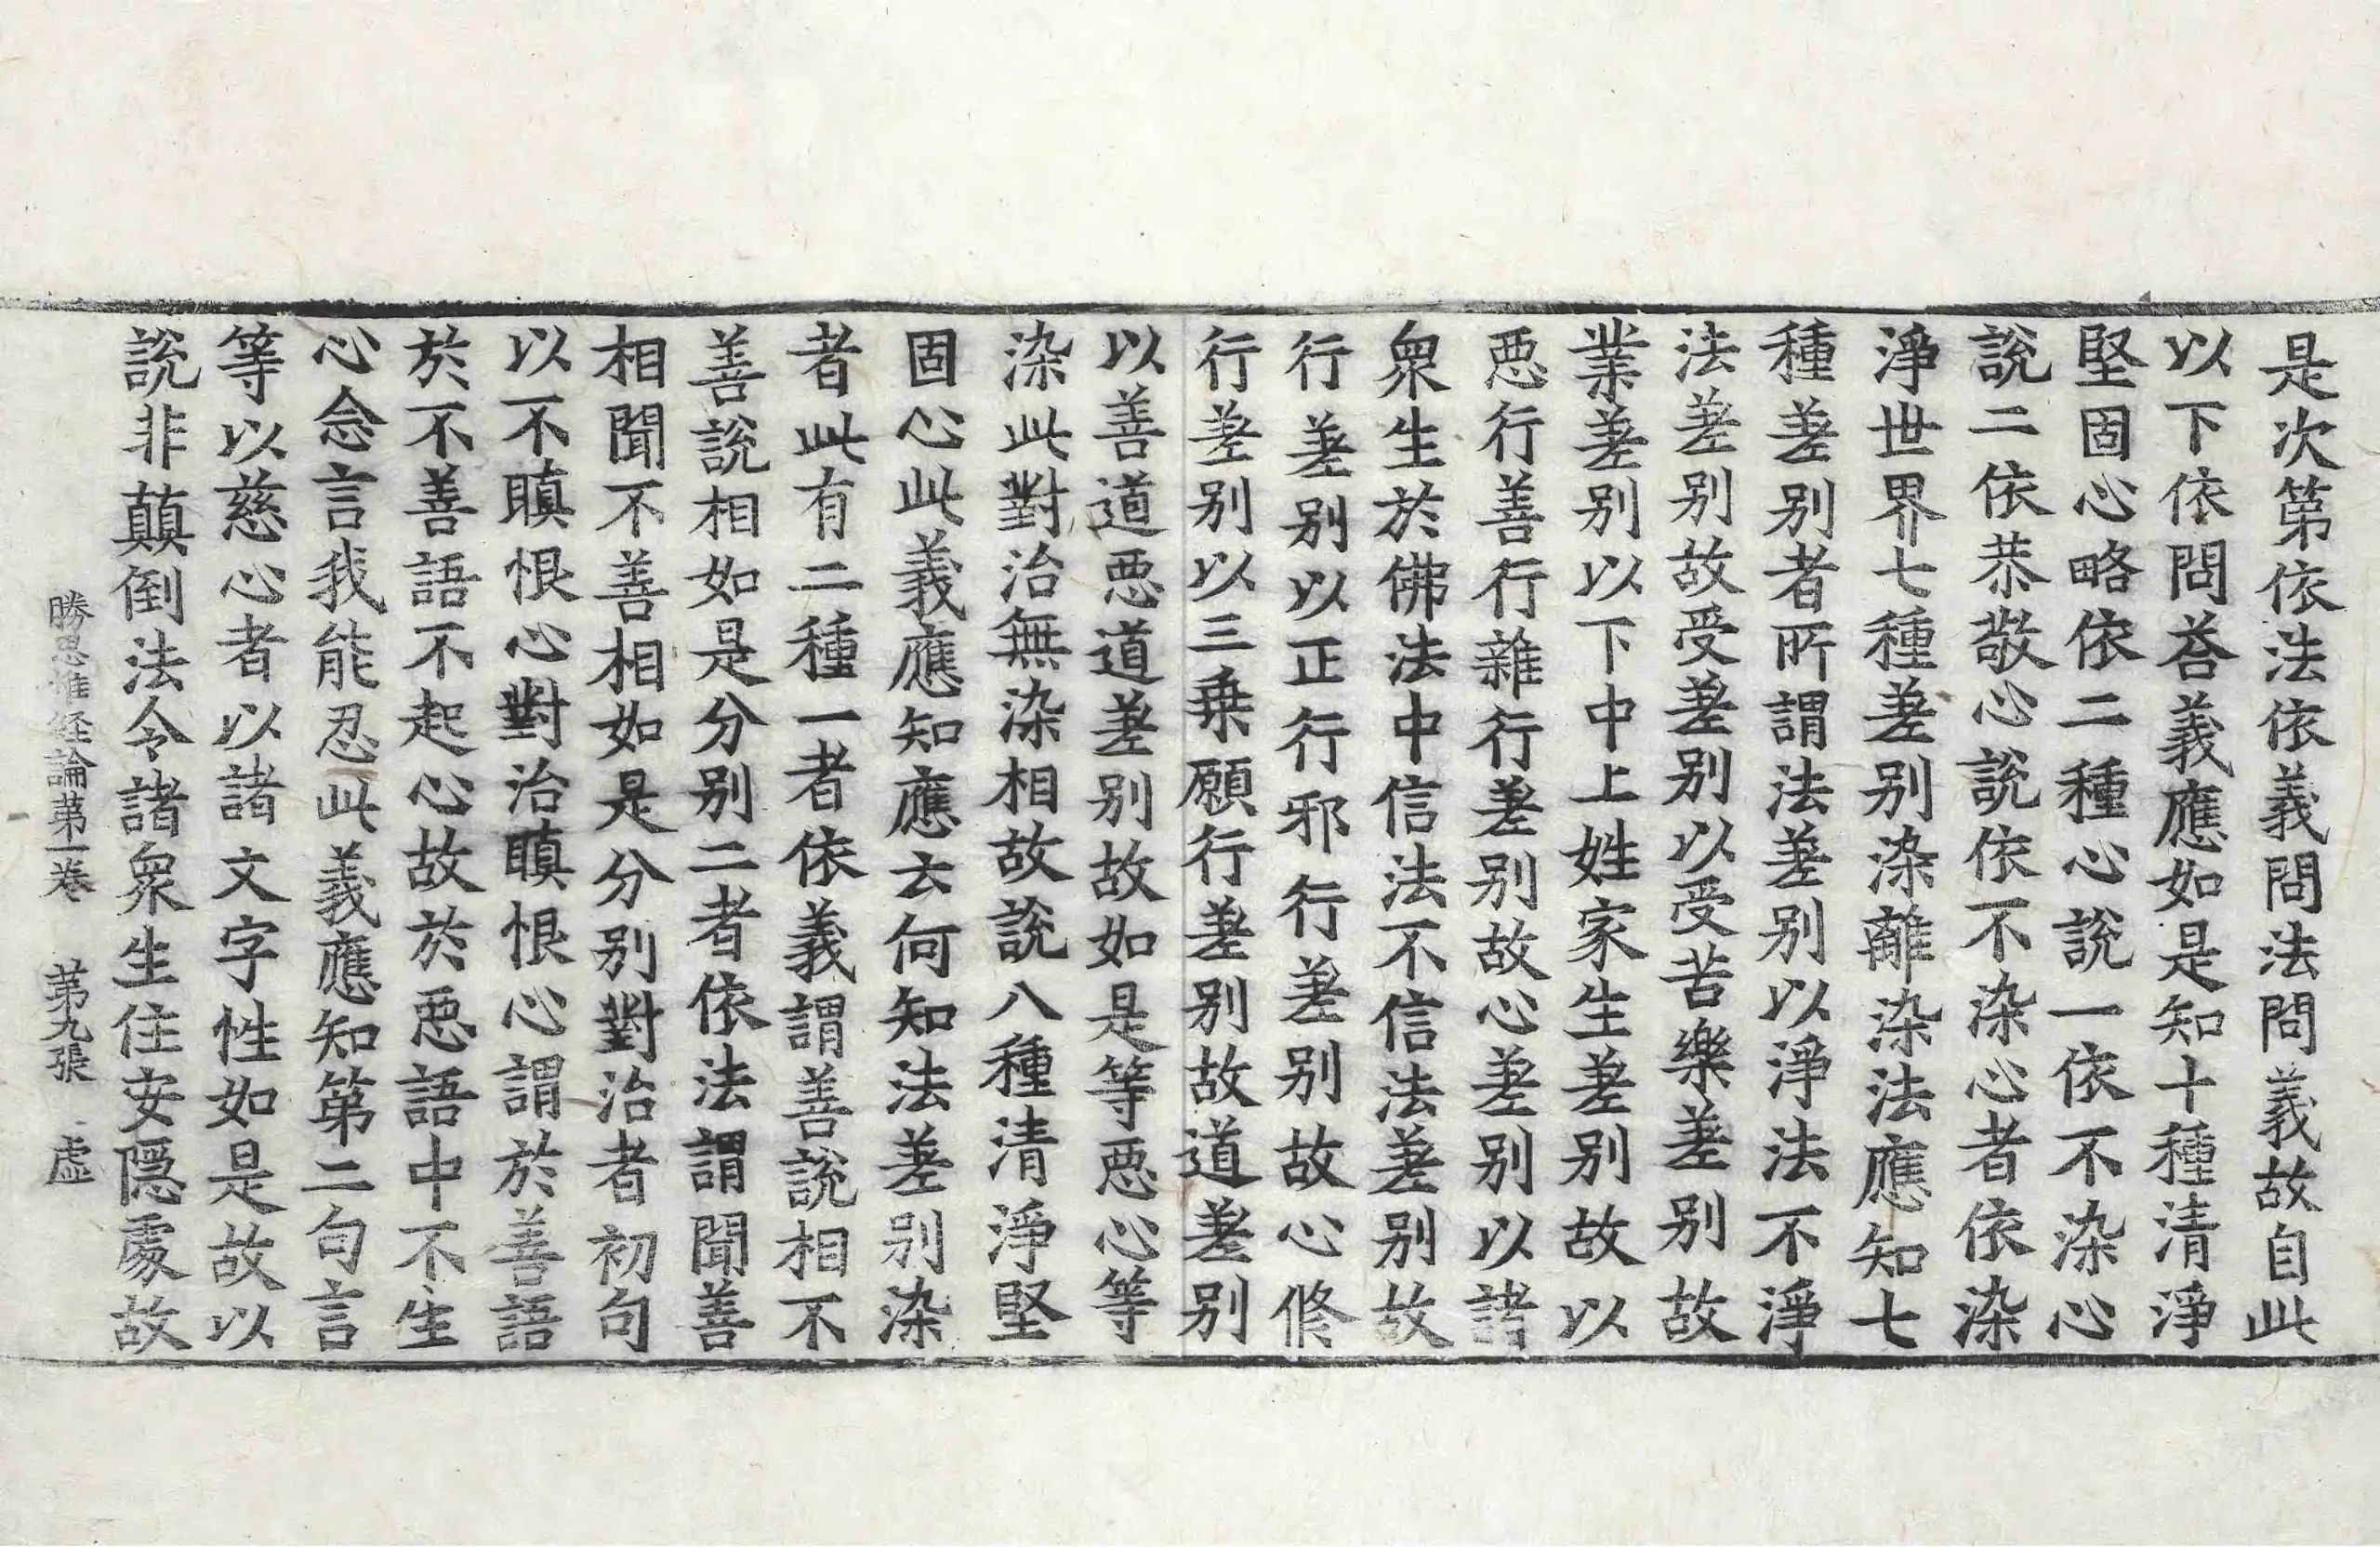 是次第依法依義問法問義故自此
以下依問荅義應如是知十種清淨
堅固心略依二種心說一依不染心
說二依恭敬心說依不染心者依染
淨世界七種差别染離染法應知七
種差别者所謂法差别以淨法不淨
法差别故受差别以受苦樂差别故
業差别以下中上姓家生差别故以
惡行善行雜行差别故心差别以諸
衆生於佛法中信法不信法差别故
行差别以正行邪行差别故心修
行差别以三乗願行差别故道差别
以善道惡道差别故如是等惡心等
染此對治無染相故說八種清淨堅
固心此義應知應云何知法差别染
者此有二種一者依義謂善說相不
善說相如是分别二者依法謂聞善
相聞不善相如是分别對治者初句
以不瞋恨心對治瞋恨心謂於善語
於不善語不起心故於惡語中不生
心念言我能忍此義應知第二句言
等以慈心者以諸文字性如是故以
說非顛倒法令諸衆生住安隱處故
勝思惟經論第一卷　第九張　虛